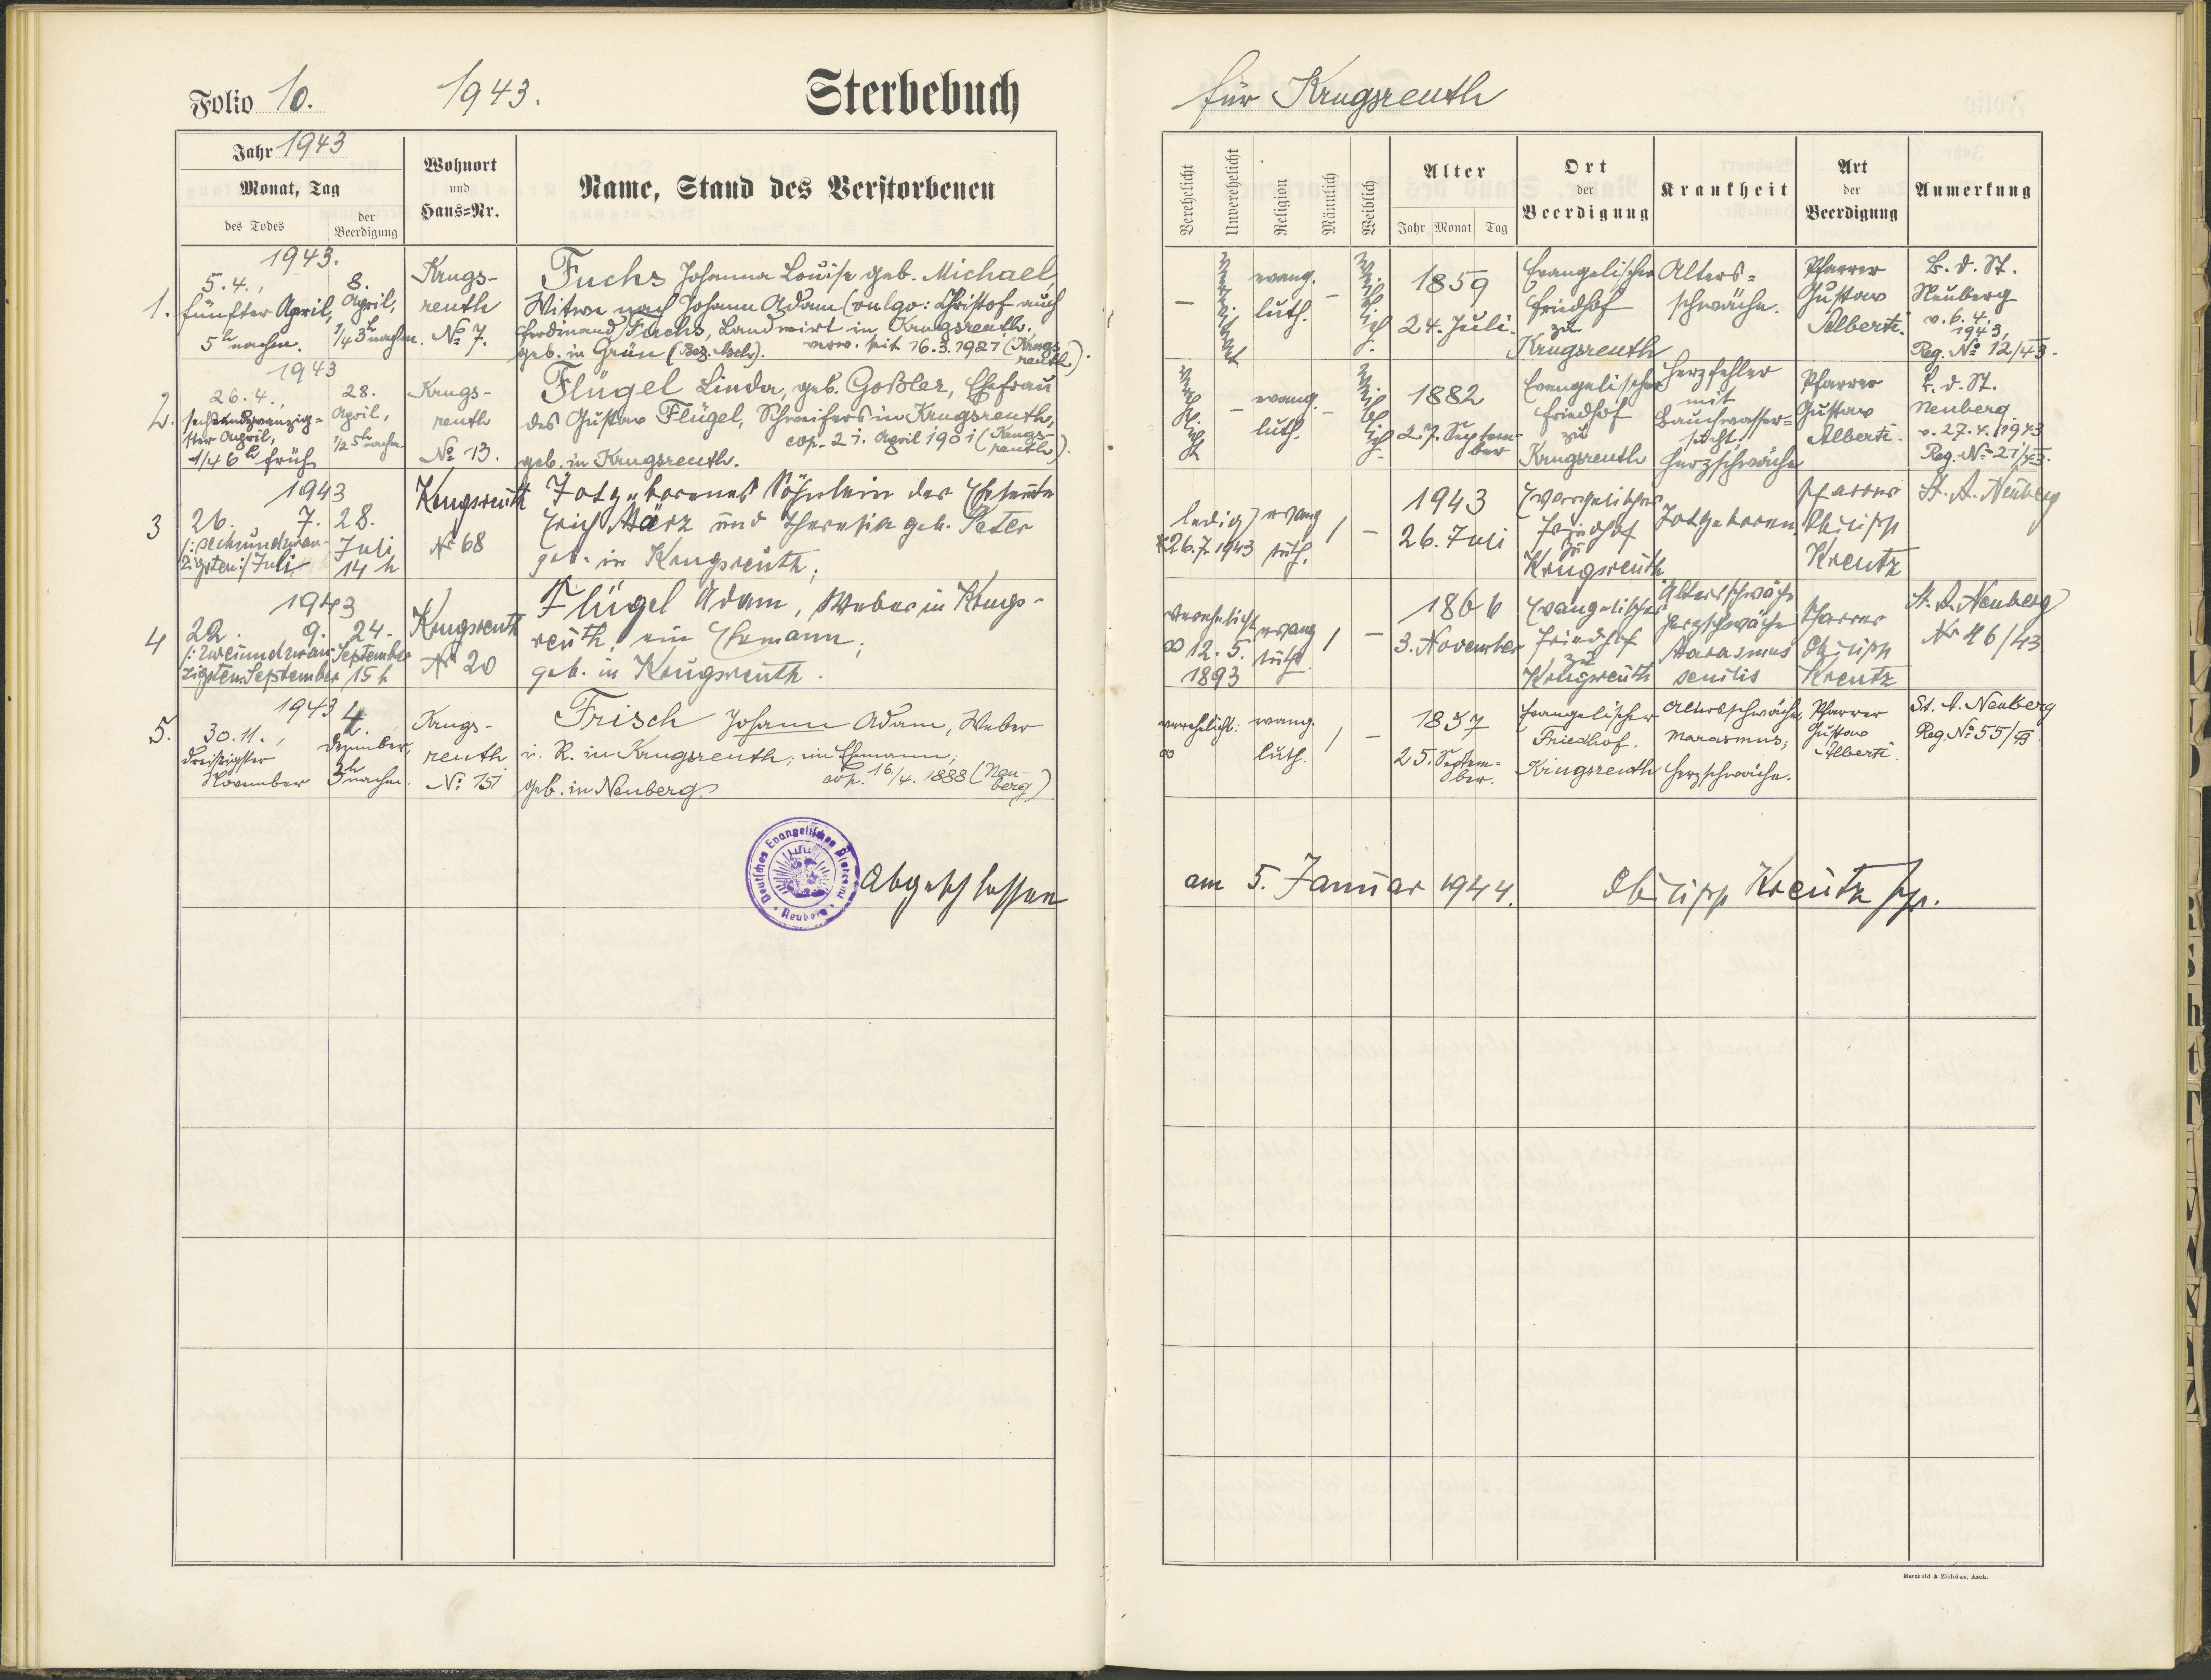 Folio 10.
1943.
Sterbebuch
für Krugsreuth
Jahr 1943
Monat, Tag
des Todes
der
Beerdigung
Wohnort
und
Haus=Nr.
Name, Stand des Verstorbenen
Verehelicht
Unverehelicht
Religion
Männlich
Weiblich
Alter
Jahr Monat Tag
Ort
der
Beerdigung
Krankheit
Art
der
Beerdigung
Anmerkung
1.
1943.
5.4.,
fünfter April,
5h nachm.
8.
April,
1/4 3h nachm.
Krugs-
reuth
No 7.
Fuchs Johanna Louise geb. Michael,
Witwe nach Johann Adam (vulgo: Christof auch
Ferdinand) Fuchs, Landwirt in Krugsreuth.
geb. in Grün (Bez. Asch). verw. seit 16.3.1921 (Krugs
reuth).
-
evang.
luth.
-
weiblich.
1859
24. Juli.
Evangelischer
Friedhof
zu
Krugsreuth
Alters=
schwäche.
Pfarrer
Gustav
Alberti.
B. d. St.
Neuberg
v. 6. 4.
1943,
Reg. No 12/43.
2.
1943
26.4.,
sechsundzwanzig=
ster April,
1/4 6h früh
28.
April,
1/2 5h nachm.
Krugs-
reuth
No 13.
Flügel Linda, geb. Goßler, Ehefrau
des Gustav Flügel, Schweifers in Krugsreuth,
cop. 21. April 1901 (Krugs-
reuth).
geb. in Krugsreuth.
verehelicht
-
evang.
luth.
-
weiblich.
1882
27. Septem-
ber
Evangelischer
Friedhof
zu
Krugsreuth
Herzfehler
mit
Bauchwasser=
sucht.
Herzschwäche
Pfarrer
Gustav
Alberti.
B. d. St.
Neuberg
v. 27.4.1943
Reg. No 21/43.
3
1943
26. 7.
/: sechsundzwan-
zigsten :/ Juli
28.
Juli
14 h
Krugsreuth
Nr 68
Totgeborenes Söhnlein der Eheleute
Erich März und Theresia geb. Peter
geb. in Krugsreuth;
ledig
*26.7.1943
evang
luth.
/
-
1943
26. Juli
Evangelischer
Friedhof
zu
Krugsreuth
Totgeboren
Pfarrer
Philipp
Kreutz
St. A. Neuberg
4
1943
22. 9.
/: zweiundzwan-
zigsten September
24.
September
15 h
Krugsreuth
Nr 20
Flügel Adam, Weber in Krugs-
reuth, ein Ehemann;
geb. in Krugsreuth.
verehelicht
∞ 12. 5.
1893
evang
luth.
/
-
1866
3. November
Evangelischer
Friedhof
zu
Krugsreuth
Altersschwäche
Herzschwäche
Marasmus
senilis
Pfarrer
Philipp
Kreutz
St. A. Neuberg
Nr 46/43
5.
1943
30.11.,
dreißigster
November
4.
Dezember,
3h nachm.
Krugs-
reuth
No 151
Frisch Johann Adam, Weber
i. R. in Krugsreuth, ein Ehemann,
cop. 16/4. 1888 (Neu-
berg)
geb. in Neuberg
verehelicht:
∞
evang.
luth.
/
-
1857
25. Septem=
ber.
Evangelischer
Friedhof.
Krugsreuth
Altersschwäche,
Marasmus,
Herzschwäche.
Pfarrer
Gustav
Alberti.
St. A. Neuberg
Reg. No 55/43
Deutsches Evangelisches Pfarramt
Neuberg
Abgeschlossen
am 5. Januar 1944.
Philipp Kreutz Pfr.
Berthold & Ziehäus, Asch.